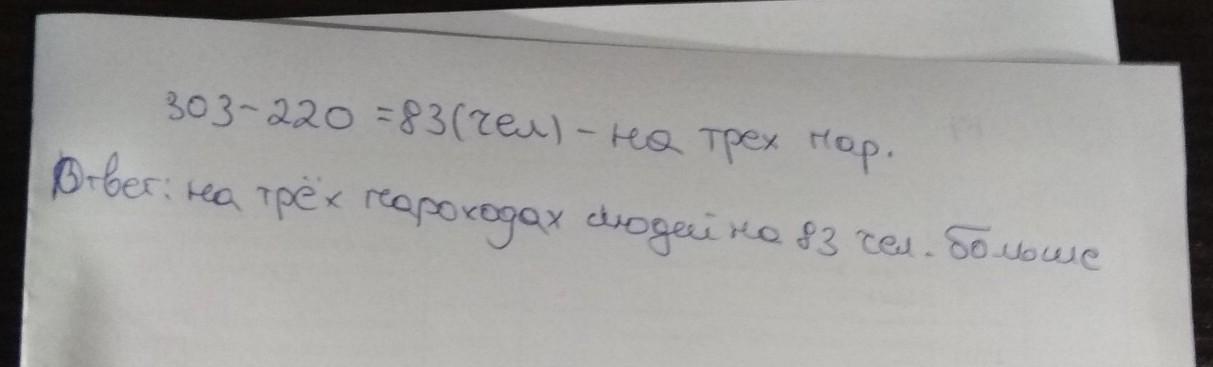 303-220 =83(чел) - на трех пар.
Ответ: на трёх пароходах людей на 83 чел. больше